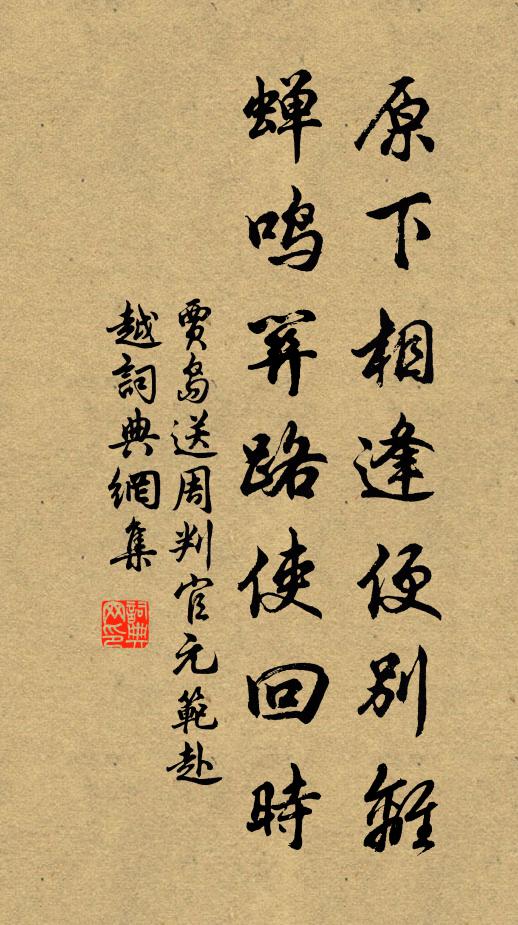 原下相逢便別離
蝉鸣關路使回時
賈島送周判官元範赴
越詞典網集
詞典
网印